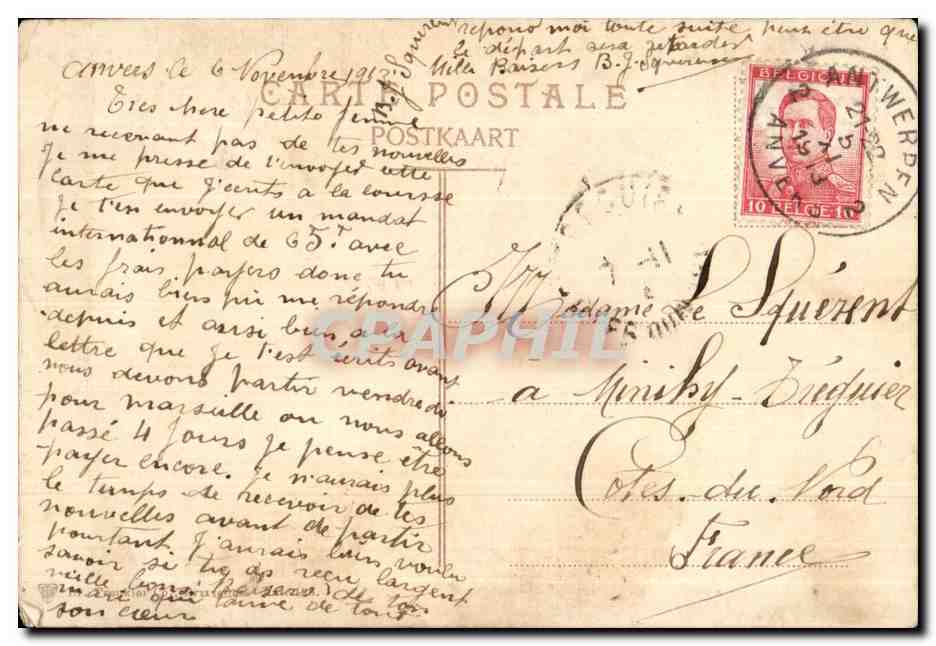 repond moi toute suite peux être que
le départ sera retarder
Mille Baisers B. J. Squerent
B. J. Squerent
Anvers le 6 Novembre 1913
CARTE POSTALE
POSTKAART
Tres chere petite femme
ne recevant pas de tes nouvelles
Je me presse de t'envoyer cette
carte que J'écrits a la coursse
Je t'en envoyer un mandat
internationnal de 65 Fr avec
les frais payers donc tu
aurais bien pu me répondre
depuis et aussi bien a la
lettre que Je t'est écrits avant
nous devons partir vendredi
pour marseille ou nous allons
passé 4 Jours Je pense être
payer encore. Je n'aurais plus
le temps de recevoir de tes
nouvelles avant de partir
pourtant J'aurais bien voulu
savoir si tu as reçu l'argent
mille bons Baisers de ton
qui t'aime de tout
son cœur
BELGIQUE
10 BELGIE 10
ANTWERPEN
ANVERS
2
21-22
5
7-11
1913
7 -11
CPAPHIL
Madame Le Squérent
a Minihy-Tréguier
Cotes-du-Nord
France